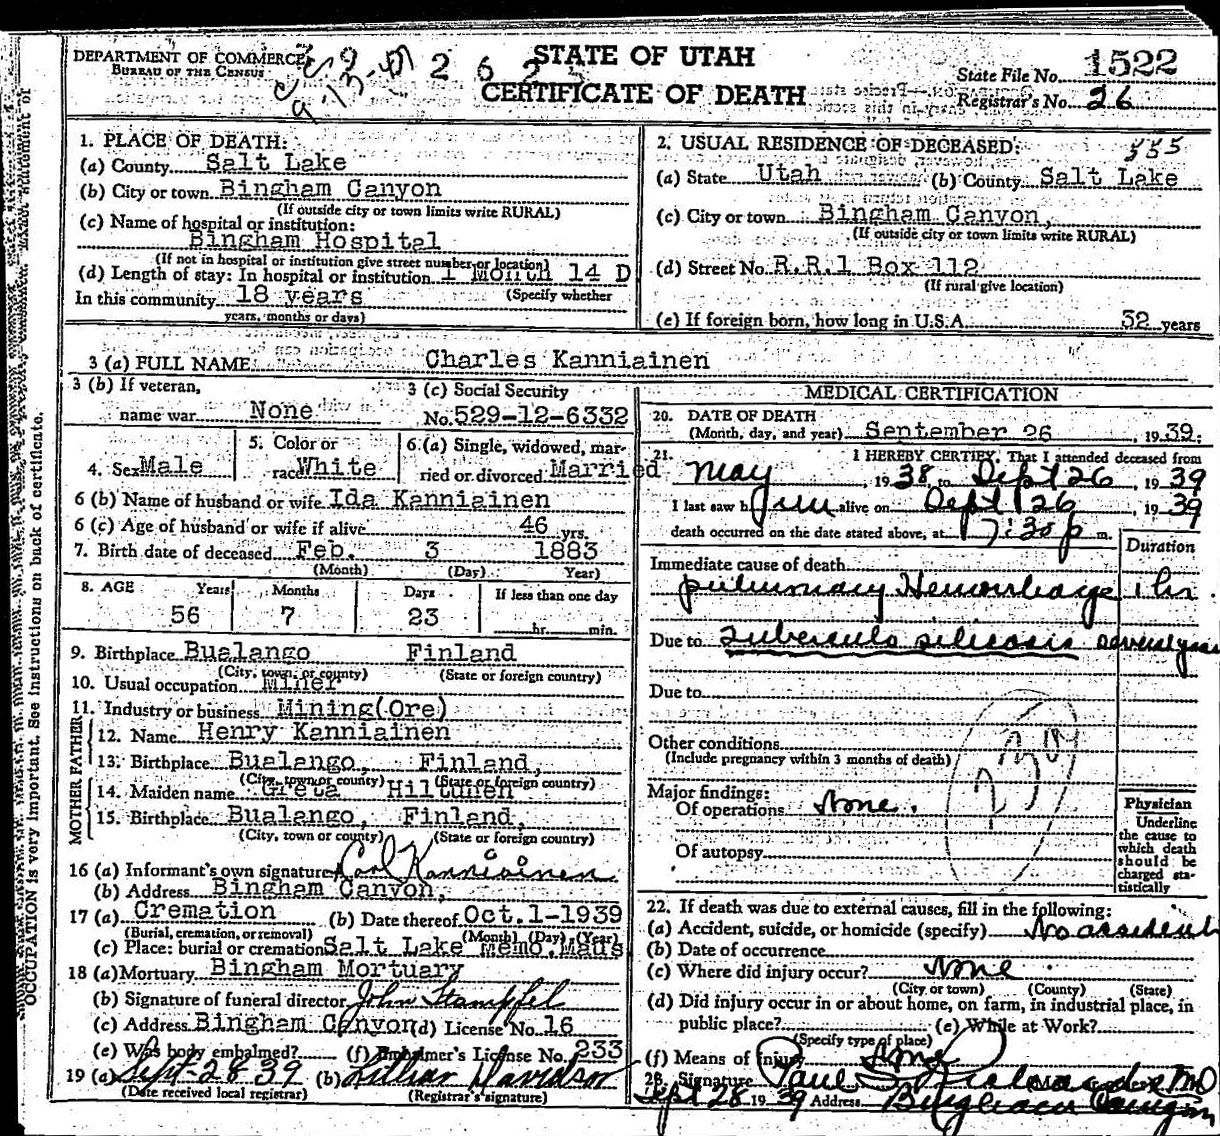 DEPARTMENT OF COMMERCE
BUREAU OF THE CENSUS
STATE OF UTAH
CERTIFICATE OF DEATH
State File No. 1522
Registrar's No. 26
1. PLACE OF DEATH:
(a) County Salt Lake
(b) City or town Bingham Canyon
(If outside city or town limits write RURAL)
(c) Name of hospital or institution:
Bingham Hospital
(If not in hospital or institution give street number or location)
(d) Length of stay: In hospital or institution 1 Month 14 D
(Specify whether
In this community 18 years
years, months or days)
2. USUAL RESIDENCE OF DECEASED:
(a) State Utah (b) County Salt Lake
(c) City or town Bingham Canyon,
(If outside city or town limits write RURAL)
(d) Street No. R.R.1 Box 112
(If rural give location)
(e) If foreign born, how long in U.S.A. 32 years
3 (a) FULL NAME Charles Kanniainen
3 (b) If veteran,
name war None
3 (c) Social Security
No. 529-12-6332
4. Sex Male
5. Color or
race White
6. (a) Single, widowed, mar-
ried or divorced Married
6 (b) Name of husband or wife Ida Kanniainen
6 (c) Age of husband or wife if alive 46 yrs.
7. Birth date of deceased Feb. 3 1883
(Month) (Day) Year)
8. AGE Years Months Days If less than one day
56 7 23 hr. min.
9. Birthplace Bualango Finland
(City, town, or county) (State or foreign country)
10. Usual occupation Miner
11. Industry or business Mining(Ore)
FATHER
12. Name Henry Kanniainen
13. Birthplace Bualango, Finland,
(City, town or county) (State or foreign country)
MOTHER
14. Maiden name Greta Hiltunen
15. Birthplace Bualango, Finland,
(City, town or county) (State or foreign country)
16 (a) Informant's own signature Carl Kanniainen
(b) Address Bingham Canyon,
17 (a) Cremation (b) Date thereof Oct.1-1939
(Burial, cremation, or removal) (Month) (Day) (Year)
(c) Place: burial or cremation Salt Lake Memo.Maus
18 (a) Mortuary Bingham Mortuary
(b) Signature of funeral director John Stampfel
(c) Address Bingham Canyon (d) License No. 16
(e) Was body embalmed? (f) Embalmer's License No. 233
19 (a) Sept-28 39 (b) Lillian Davidson
(Date received local registrar) (Registrar's signature)
MEDICAL CERTIFICATION
20. DATE OF DEATH
(Month, day, and year) September 26, 1939.
21. I HEREBY CERTIFY, That I attended deceased from
May, 1938 to Sept 26, 1939
I last saw him alive on Sept 26, 1939
death occurred on the date stated above, at 7:30 p m.
Duration
Immediate cause of death
pulmonary Hemorrhage 1 hr.
Due to tuberculo silicosis several years
Due to
Other conditions
(Include pregnancy within 3 months of death)
Major findings:
Of operations None.
Of autopsy
Physician
Underline
the cause to
which death
should be
charged sta-
tistically
22. If death was due to external causes, fill in the following:
(a) Accident, suicide, or homicide (specify) No accident
(b) Date of occurrence
(c) Where did injury occur? None
(City or town) (County) (State)
(d) Did injury occur in or about home, on farm, in industrial place, in
public place? (e) While at Work?
(Specify type of place)
(f) Means of Injury None
23. Signature Paul S. MD
Sept 28 1939 Address Bingham Canyon
OCCUPATION is very important. See instructions on back of certificate.